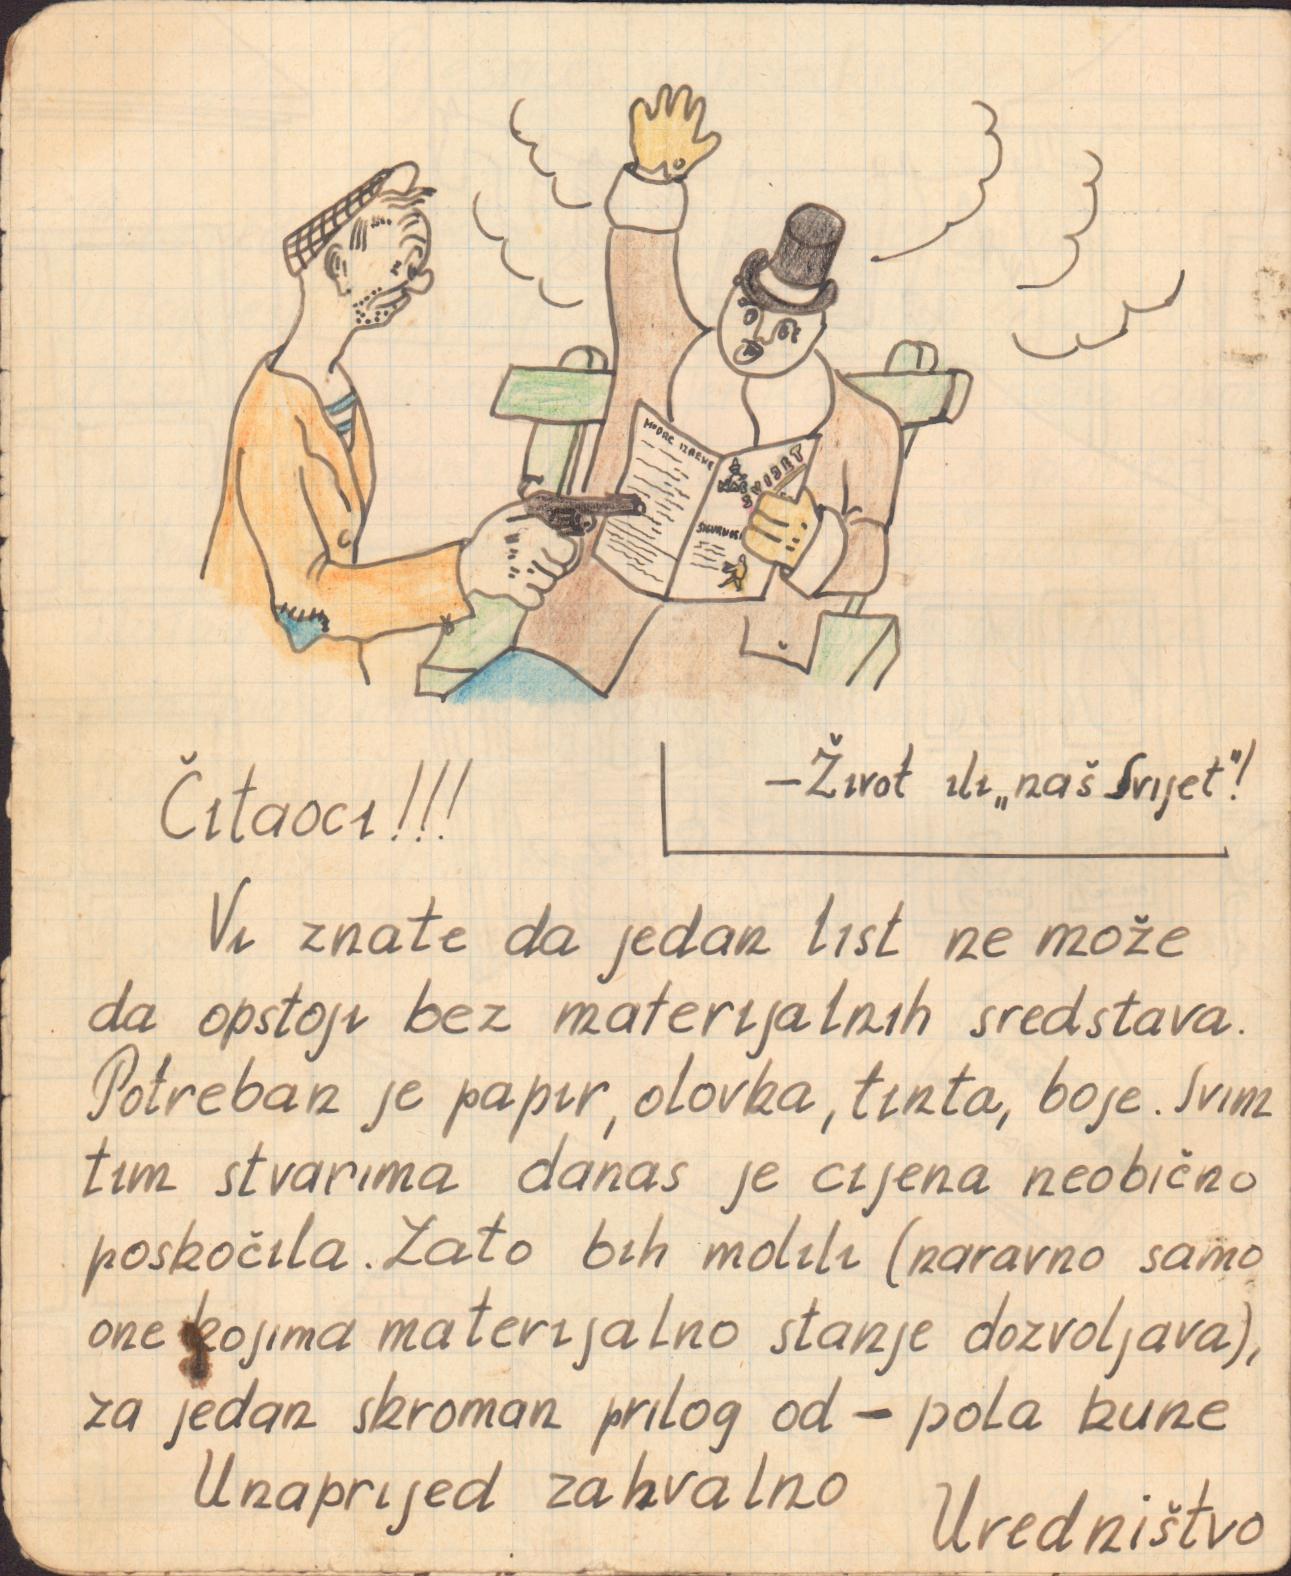 MODRE IZREKE
NAŠ
SVIJET
– Život ili „naš Svijet“!
Čitaoci!!!
Vi znate da jedan list ne može
da opstoji bez materijalnih sredstava.
Potreban je papir, olovka, tinta, boje. Svim
tim stvarima danas je cijena neobično
poskočila. Zato bih molili (naravno samo
one kojima materijalno stanje dozvoljava),
za jedan skroman prilog od – pola kune
Unaprijed zahvalno
Uredništvo